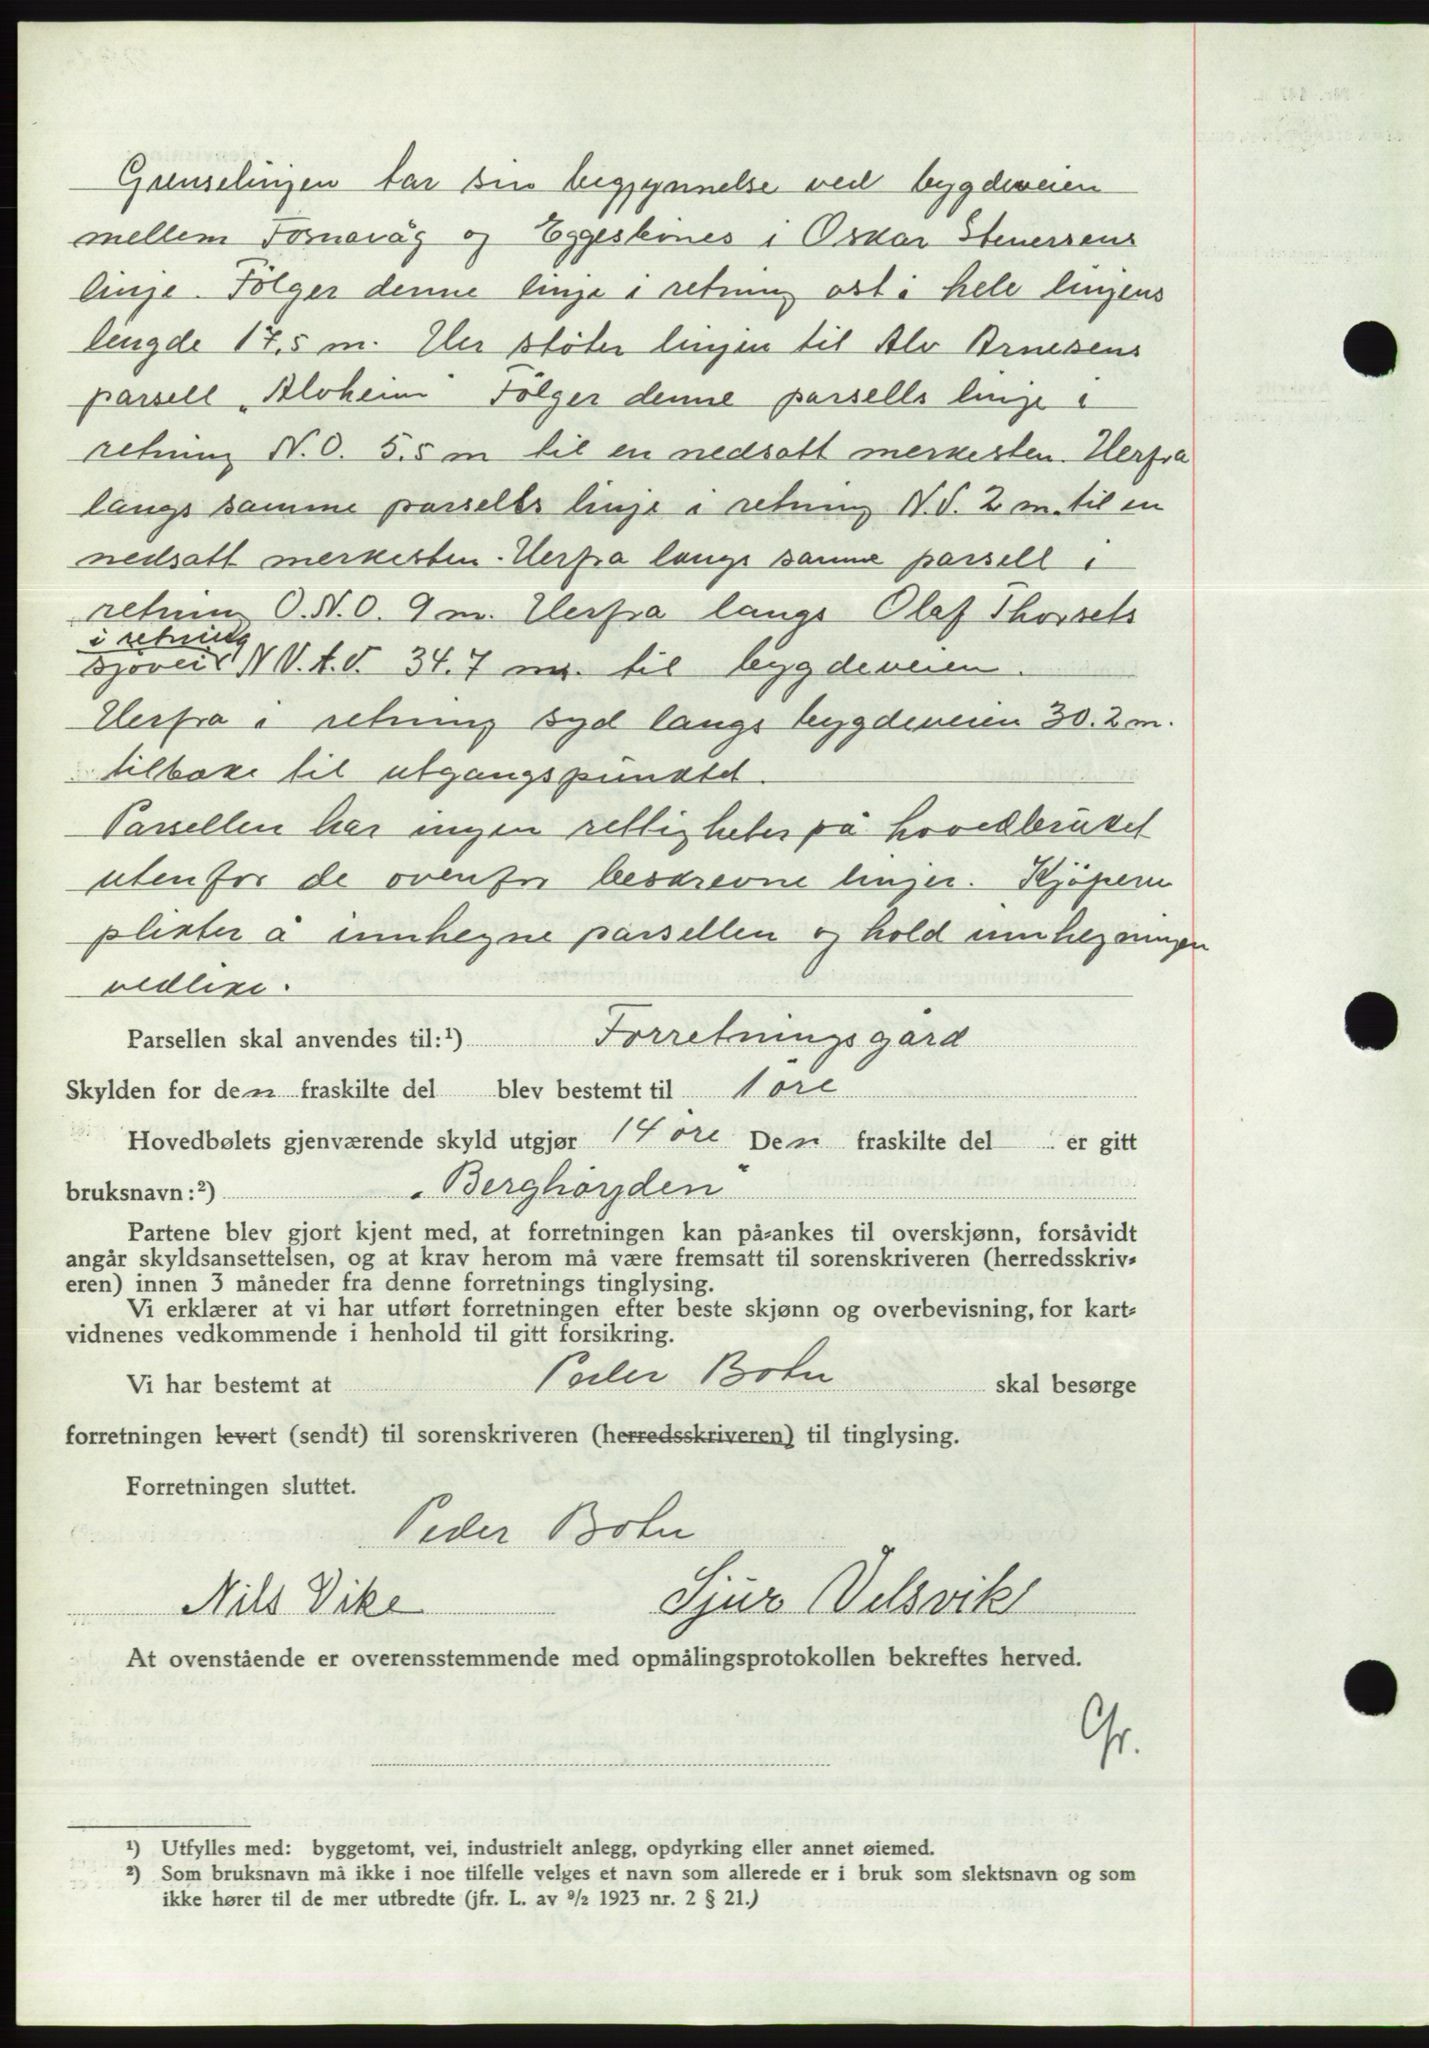 Grenselinjen tar sin begynnelse ved bygdeveien
mellem Fosnavåg og Eggesbönes i Oskar Stenersens
linje. Fölger denne linje i retning ost i hele linjens
lengde 17,5 m. Her stöter linjen til Alv Arnesens
parsell „Alvheim" Fölger denne parsells linje i
retning N.O. 5.5 m til en nedsatt merkesten. Herfra
langs samme parsells linje i retning N.V. 2 m. til en
nedsatt merkesten. Herfra langs samme parsell i
retning O.N.O. 9 m. Herfra langs Olaf Thorsets
i retning
sjövei N V.t.V. 34.7 m. til bygdeveien.
Herfra i retning syd langs bygdeveien 30.2 m.
tilbake til utgangspunktet.
Parsellen har ingen rettigheter på hovedbruket
utenfor de ovenfor beskrevne linjer. Kjöperen
plikter å innhegne parsellen og hold innhegningen
vedlike.
Parsellen skal anvendes til:¹) Forretningsgård
Skylden for den fraskilte del blev bestemt til 1 öre
Hovedbølets gjenværende skyld utgjør 14 öre Den fraskilte del er gitt
bruksnavn:²) „Berghöyden"
Partene blev gjort kjent med, at forretningen kan på-ankes til overskjønn, forsåvidt
angår skyldsansettelsen, og at krav herom må være fremsatt til sorenskriveren (herredsskriv-
eren) innen 3 måneder fra denne forretnings tinglysing.
Vi erklærer at vi har utført forretningen efter beste skjønn og overbevisning, for kart-
vidnenes vedkommende i henhold til gitt forsikring.
Vi har bestemt at Peder Botn skal besørge
forretningen levert (sendt) til sorenskriveren (herredsskriveren) til tinglysing.
Forretningen sluttet.
Peder Botn
Nils Vike Sjur Velsvik
At ovenstående er overensstemmende med opmålingsprotokollen bekreftes herved.
Gr.
¹) Utfylles med: byggetomt, vei, industrielt anlegg, opdyrking eller annet øiemed.
²) Som bruksnavn må ikke i noe tilfelle velges et navn som allerede er i bruk som slektsnavn og som
ikke hører til de mer utbredte (jfr. L. av ⁹/₂ 1923 nr. 2 § 21.)